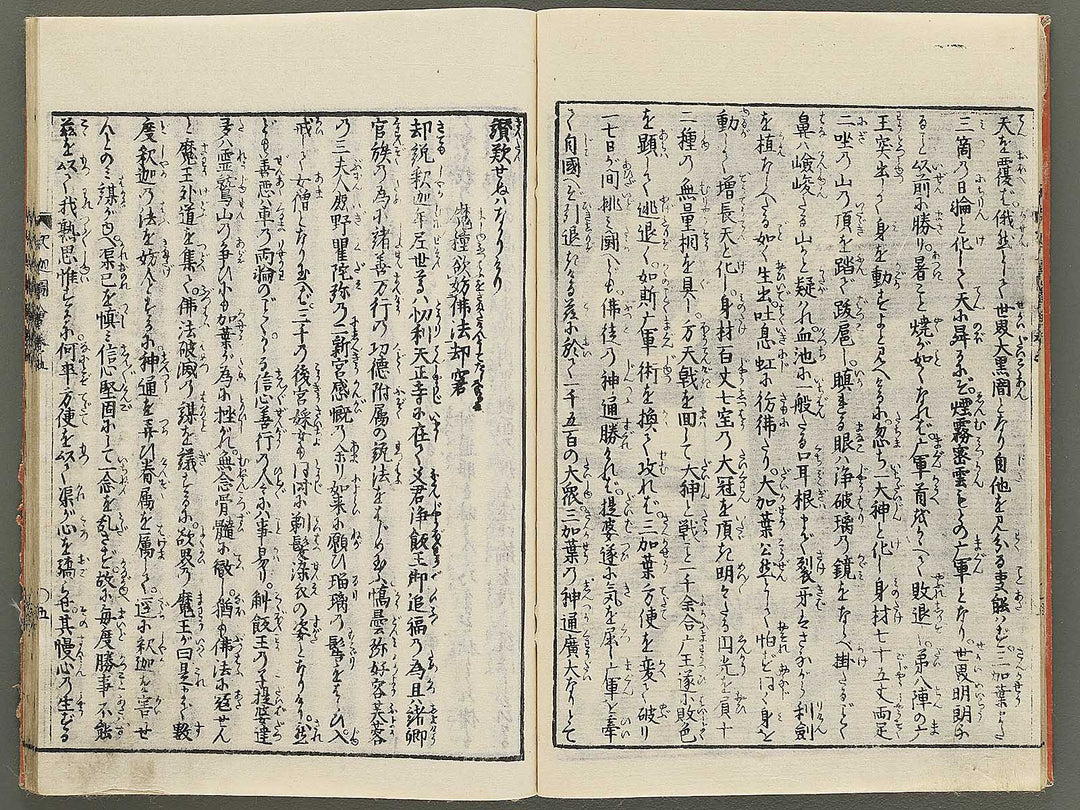 天を覆ば俄然として世界大黒闇となり自他を見分る事能はず三加葉また
三箇の日輪と化して天に昇るにぞ煙霧密雲もとの亡軍となり世界明朗な
ること以前に勝り暑こと焼が如くなれば亡軍首をかゝへて敗退し第八陣の亡
王突出して身を動すよと見へるに忽ち大神と化し身材七十五丈両足
二坐の山の頂を踏で跋扈し瞋れる眼は浄破璃の鏡をならべ掛たるごとく
鼻は嶮峻たる山かと疑はれ血池に一般たる口耳根まで裂牙はさながら利剣
を植ならべたる如く生出吐息虹に彷彿たり大加葉公然として怕ずにはかに身を
動して増長天と化し身材一百丈七室の大冠を頂き明々たる円光を負十
二種の無量相を具し一方天戟を回して大神と戦こと一千余合亡王遂に敗色
を顕して逃退く如斯亡軍術を換て攻れば三加葉方便を変て破り
一七日が間挑み闘へども佛徒の神通勝れば提婆遂に気を屈し亡軍を牽
て月國を引退たる茲に於て一千五百の大衆三加葉の神通廣大なりとて
讃歎せぬはなかりけり
魔種欲妨佛法却窘
却説釈迦牟尼世尊は忉利天正寺に在して父君浄飯王御追福の為且諸卿
官族の為に諸善万行の功徳附属の説法をはじめ玉ふ憍曇弥好容芙容
の三夫人及野瞿陀弥の二新宮感慨の余り如来に願ひ瑠璃の髻をはらひ入
戒して女僧となり玉へば三千の後宮婇女も同に剃髪染衣の姿となりけり然
ども善悪は車の両輪のごとくかゝる信心善行の今に事易り斛飯王の子提婆達
多は霊鷲山の争ひにも加葉が為に挫れ無念骨髄に徹し猶も佛法に冦せん
と魔王外道を集て佛法破滅の謀を議するに欲界の魔王が曰是まで数
度釈迦の法を妨んとするに神通を弄び眷属を属して逆に釈迦を害せ
んとのみ謀がゆへ渠己を慎み信心堅固にして一念を乱さず故に毎度勝事不能
茲を以て我熟思惟するに何卒方便を以て渠が心を驕らせ其慢心の生ずる
釈迦圖會巻五
〇五